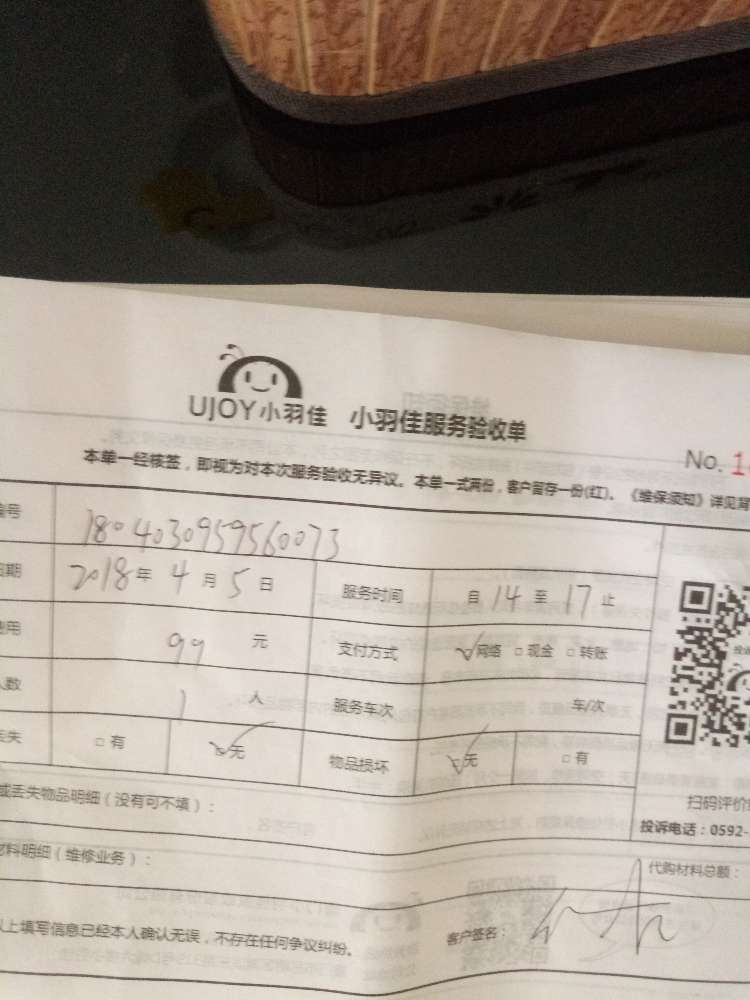 UJOY小羽佳 小羽佳服务验收单
No. 1
本单一经核签，即视为对本次服务验收无异议。本单一式两份，客户留存一份(红)。《维保须知》详见背
编号 1804030959560073
日期 2018年 4 月 5 日 服务时间 自 14 至 17 止
费用 99 元 支付方式 ☑网络 □现金 □转账
人数 1 人 服务车次 车/次
丢失 □有 ☑无 物品损坏 ☑无 □有
或丢失物品明细（没有可不填）：
扫码评价
投诉电话：0592-
材料明细（维修业务）：
代购材料总额：
以上填写信息已经本人确认无误，不存在任何争议纠纷。 客户签名：